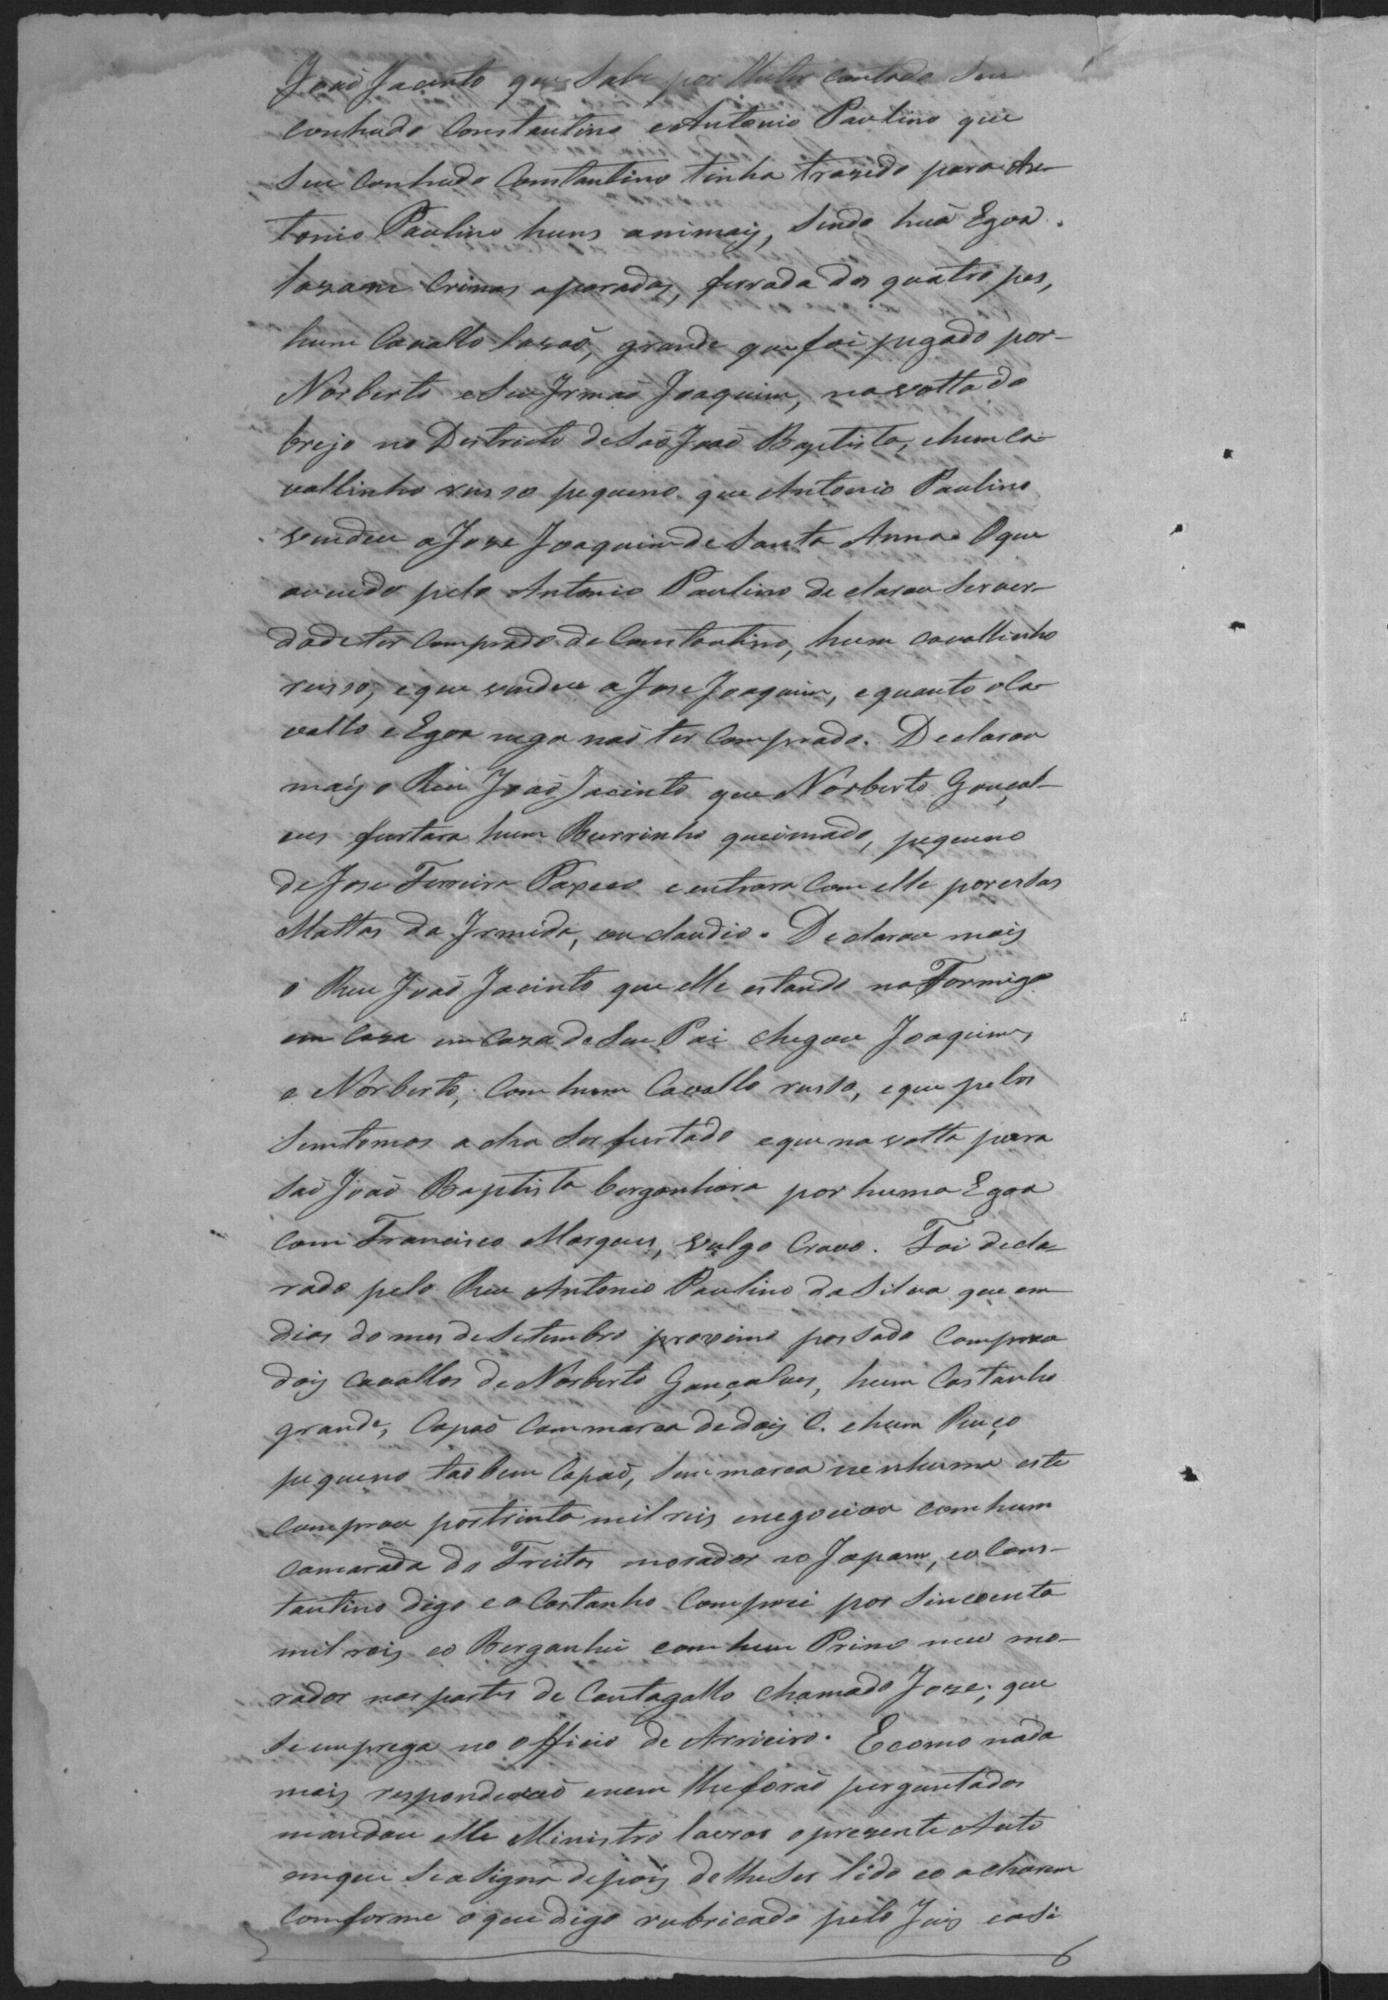 João Jacinto que Sabe por lhe ter contado Seu
cunhado Constantino e Antonio Paulino que
Seu Cunhado Constantino tinha trazido para An-
tonio Paulino huns animaiz, Sendo huã Egoa
lazam Crinas aparadas, ferrada dos quatro pes,
hum Cavallo lazaõ, grande que foi pegado por
Norberto e Seu Irmaõ Joaquim, na volta do
brejo no Destricto de Saõ Joaõ Baptista, e hum Ca-
vallinho russo pequeno que Antonio Paulino
vendeu a Joze Joaquim de Santa Anna. O que
ouvido pelo Antonio Paulino declarou Ser ver-
dade ter Comprado de Constantino, hum cavallinho
russo, e que vendeu a Joze Joaquim, e quanto o Ca-
vallo e Egoa nega naõ ter Comprado. Declarou
maiz o Reu Joaõ Jacinto que Norberto Gonçal-
ves furtara hum Burrinho queimado, pequeno
de Joze Ferreira Paxeco e entrara Com elle por estas
Mattas da Irmida, ou Claudio. Declarou mais
o Reu Joaõ Jacinto que elle estando na Formiga
em Caza em Caza de Seu Pai chegou Joaquim
e Norberto, Com hum Cavallo russo, e que pelos
Sintomas acha Ser furtado e que na volta para
Saõ Joaõ Baptista berganhara por huma Egoa
Com Francisco Marques, vulgo Cravo. Foi decla-
rado pelo Reu Antonio Paulino da Silva que em
dias do mes de Setembro proximo passado Comprou
doiz cavallos de Norberto Gonçalves, hum Castanho
grande, Capaõ Com marca de doiz C. e hum Ruço
pequeno taõbem Capaõ, Sem marca nenhuma este
comprou por trinta mil reis e negociou com hum
camarada do Freitas morador no Japam, e o Cons-
tantino digo e o Castanho Comprei por Sincoenta
mil reis e o Berganhei com hum Primo meu mo-
rador nas partes de Cantagallo chamado Joze, que
Se emprega no officio de Arrieiro. E como nada
mais responderaõ e nem lhe foraõ perguntados
mandou elle Ministro lavrar o prezente Auto
em que Se asigna depois de lhe Ser lido e o acharem
Conforme o que digo rubricado pelo Juiz e asi